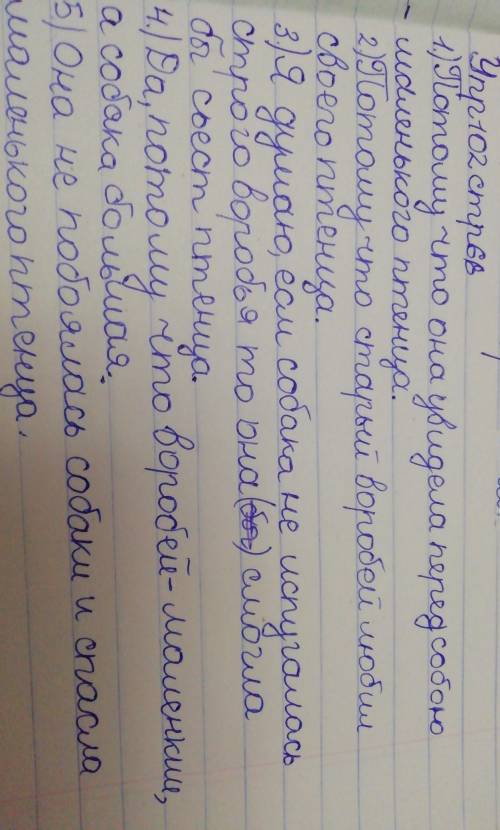 Упр102 стр68
1) Потому что она увидела перед собою
маленького птенца.
2) Потому что старый воробей любил
своего птенца.
3) Я думаю, если собака не испугалась
строго воробья то она (бы) смогла
бы сьест птенца.
4.) Да, потому что воробей - маленкие,
а собака большая.
5) Она не побоялась собаки и спасла
маленького птенца.